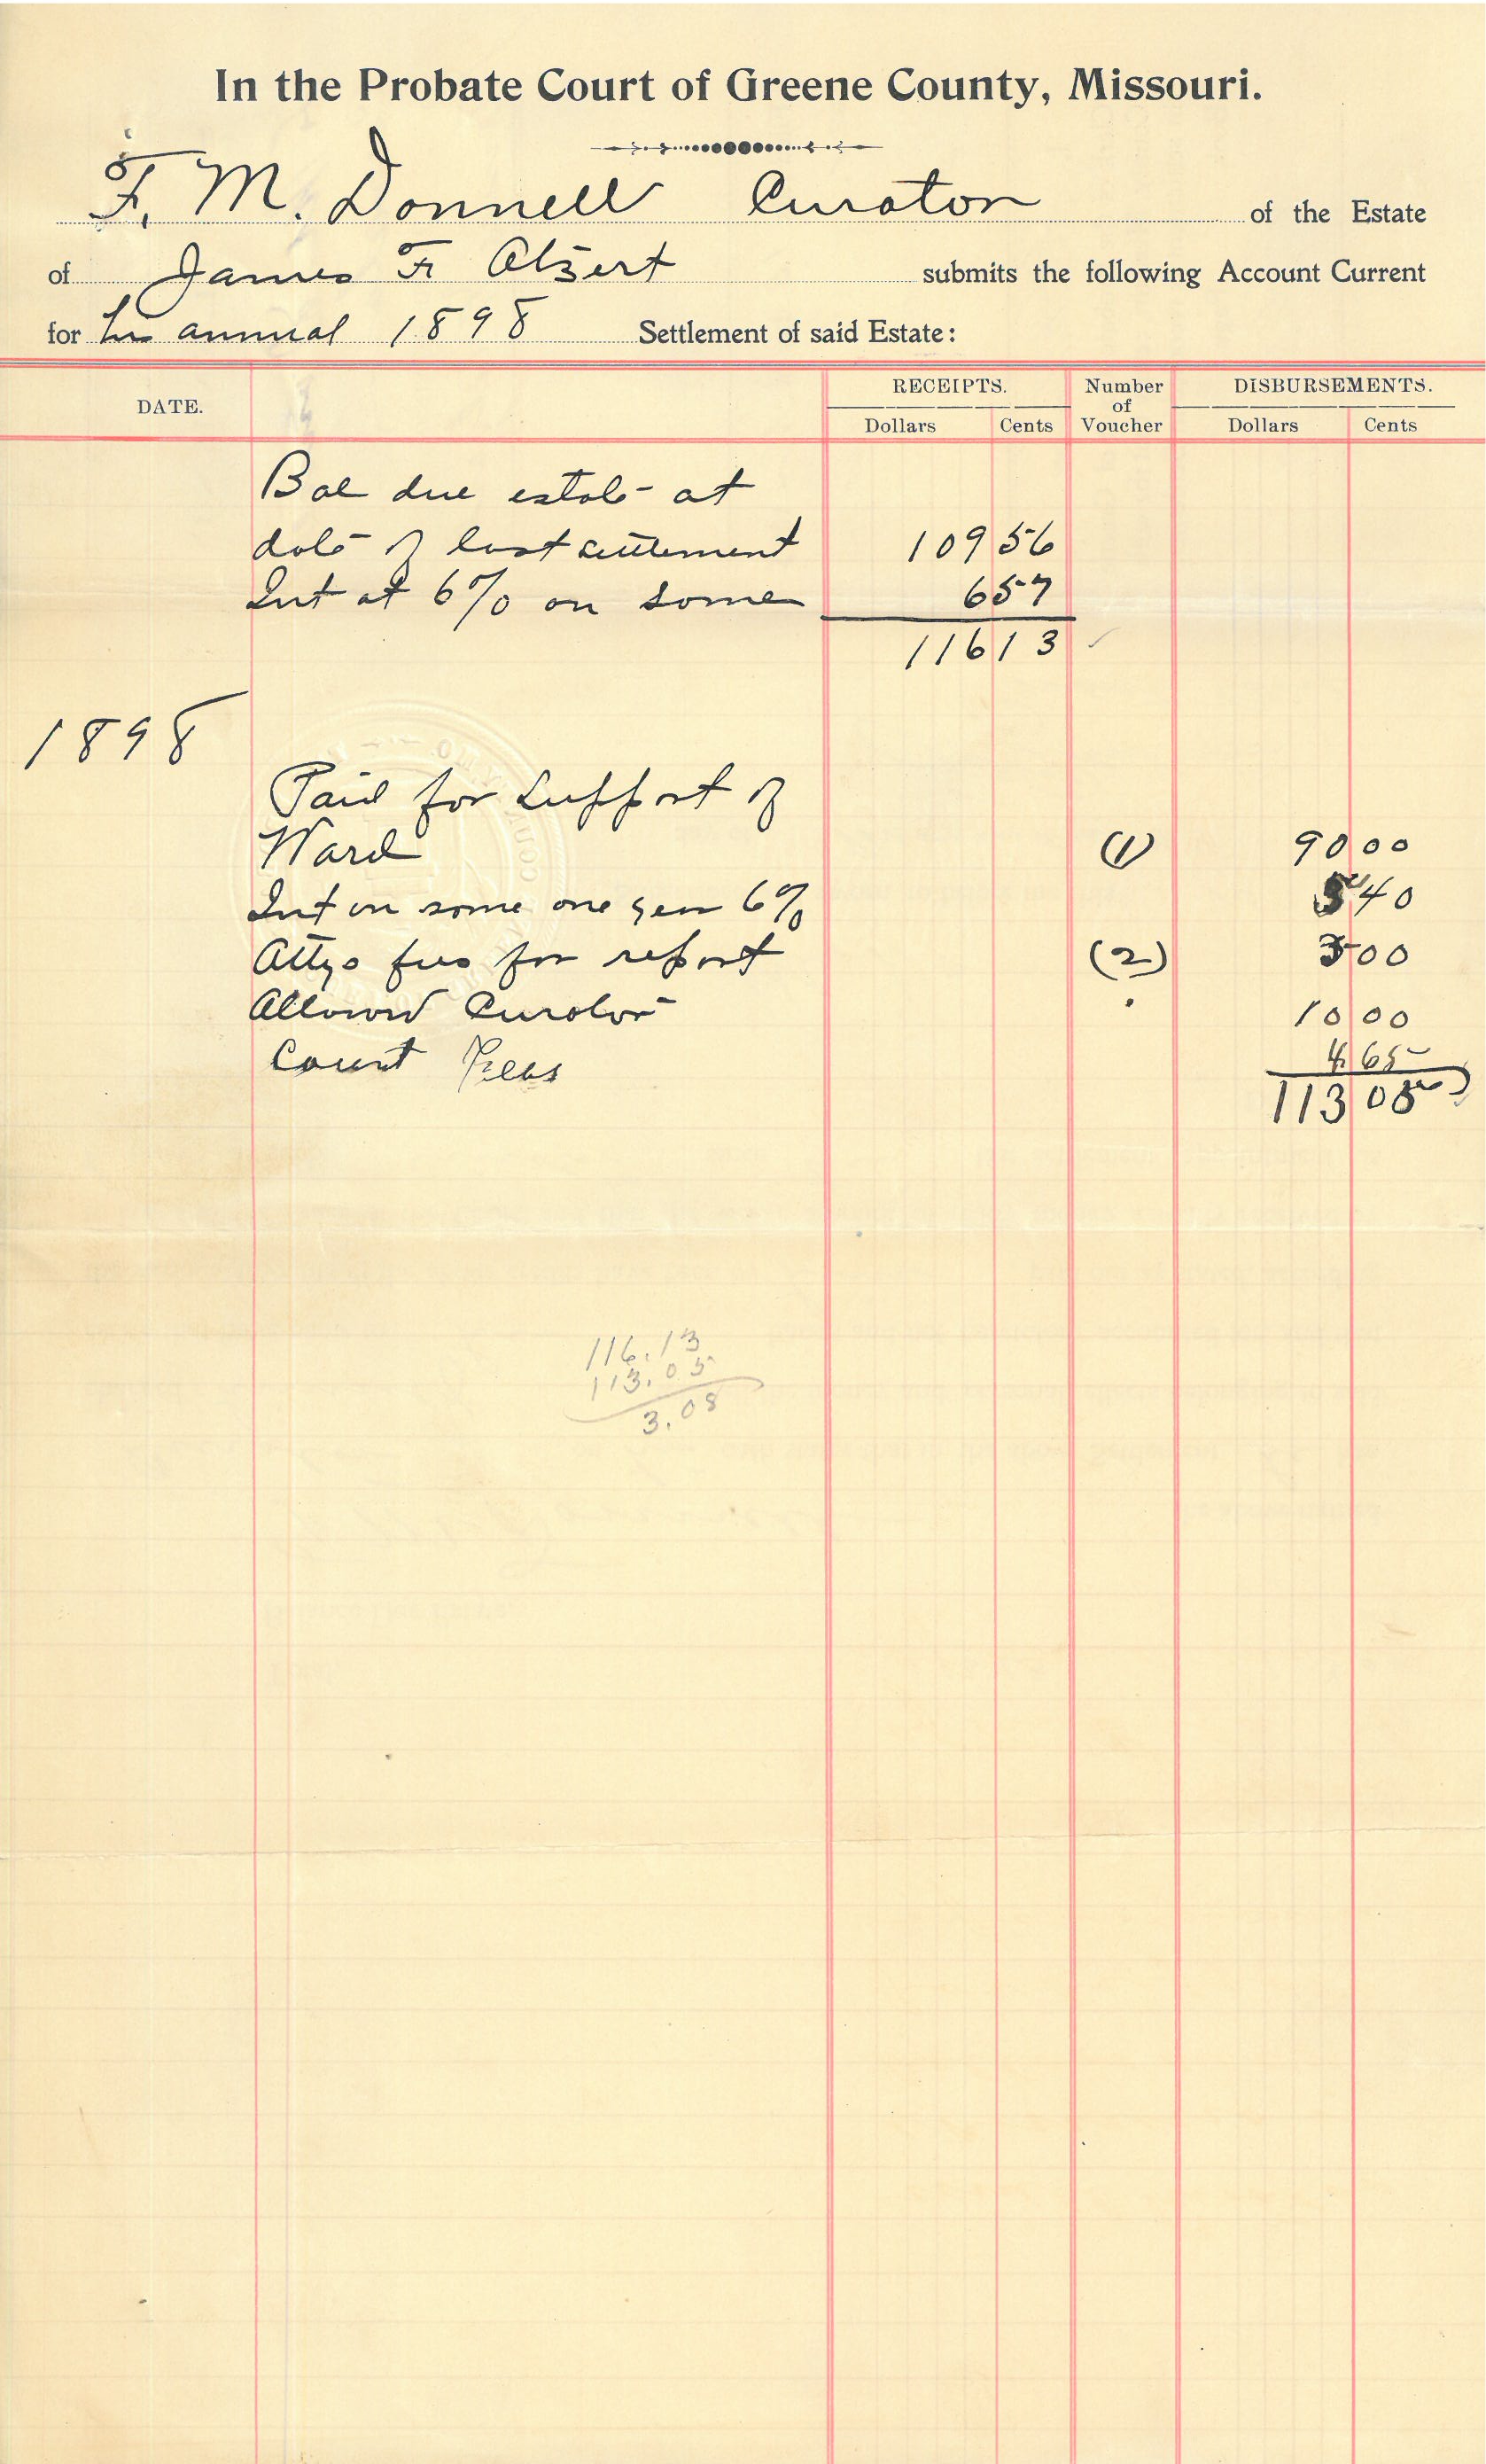 In the Probate Court of Greene County, Missouri.
F. M. Donnell Curator of the Estate
of James F. Alsert submits the following Account Current
for his annual 1898 Settlement of said Estate:
DATE. RECEIPTS. Number of Voucher DISBURSEMENTS.
Dollars Cents Dollars Cents
Bal due estate at
date of last settlement 109 56
Int at 6% on same 6 57
116 13
1898
Paid for support of
Ward (1) 90 00
Int on same one year 6% 5 40
Attys fees for report (2) 3 00
Allowed Curator 10 00
Court Fees 4 65
113 05
116.13
113.05
3.08